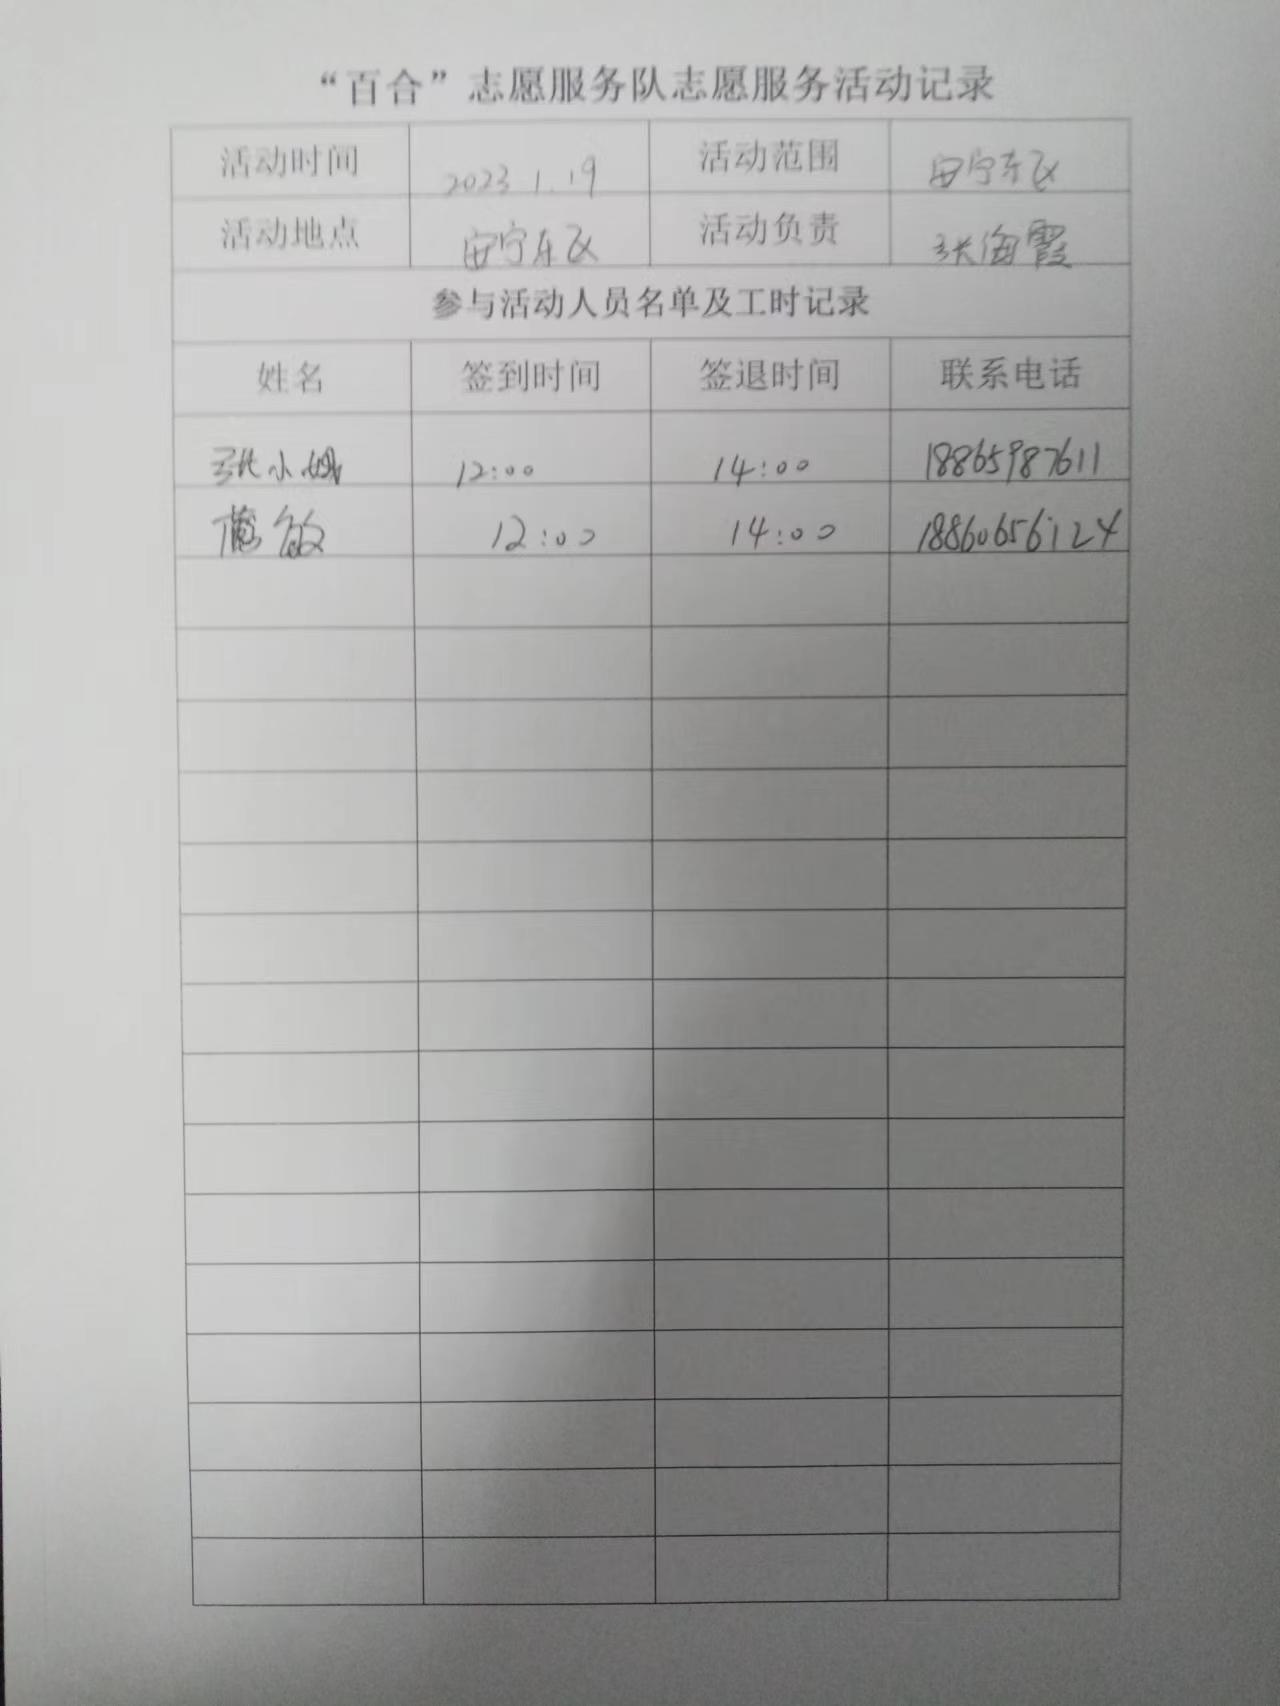 “百合”志愿服务队志愿服务活动记录
活动时间 2023.1.19 活动范围 安宁东区
活动地点 安宁东区 活动负责 张海霞
参与活动人员名单及工时记录
姓名 签到时间 签退时间 联系电话
张小娥 12:00 14:00 18865987611
敏 12:00 14:00 18860656124